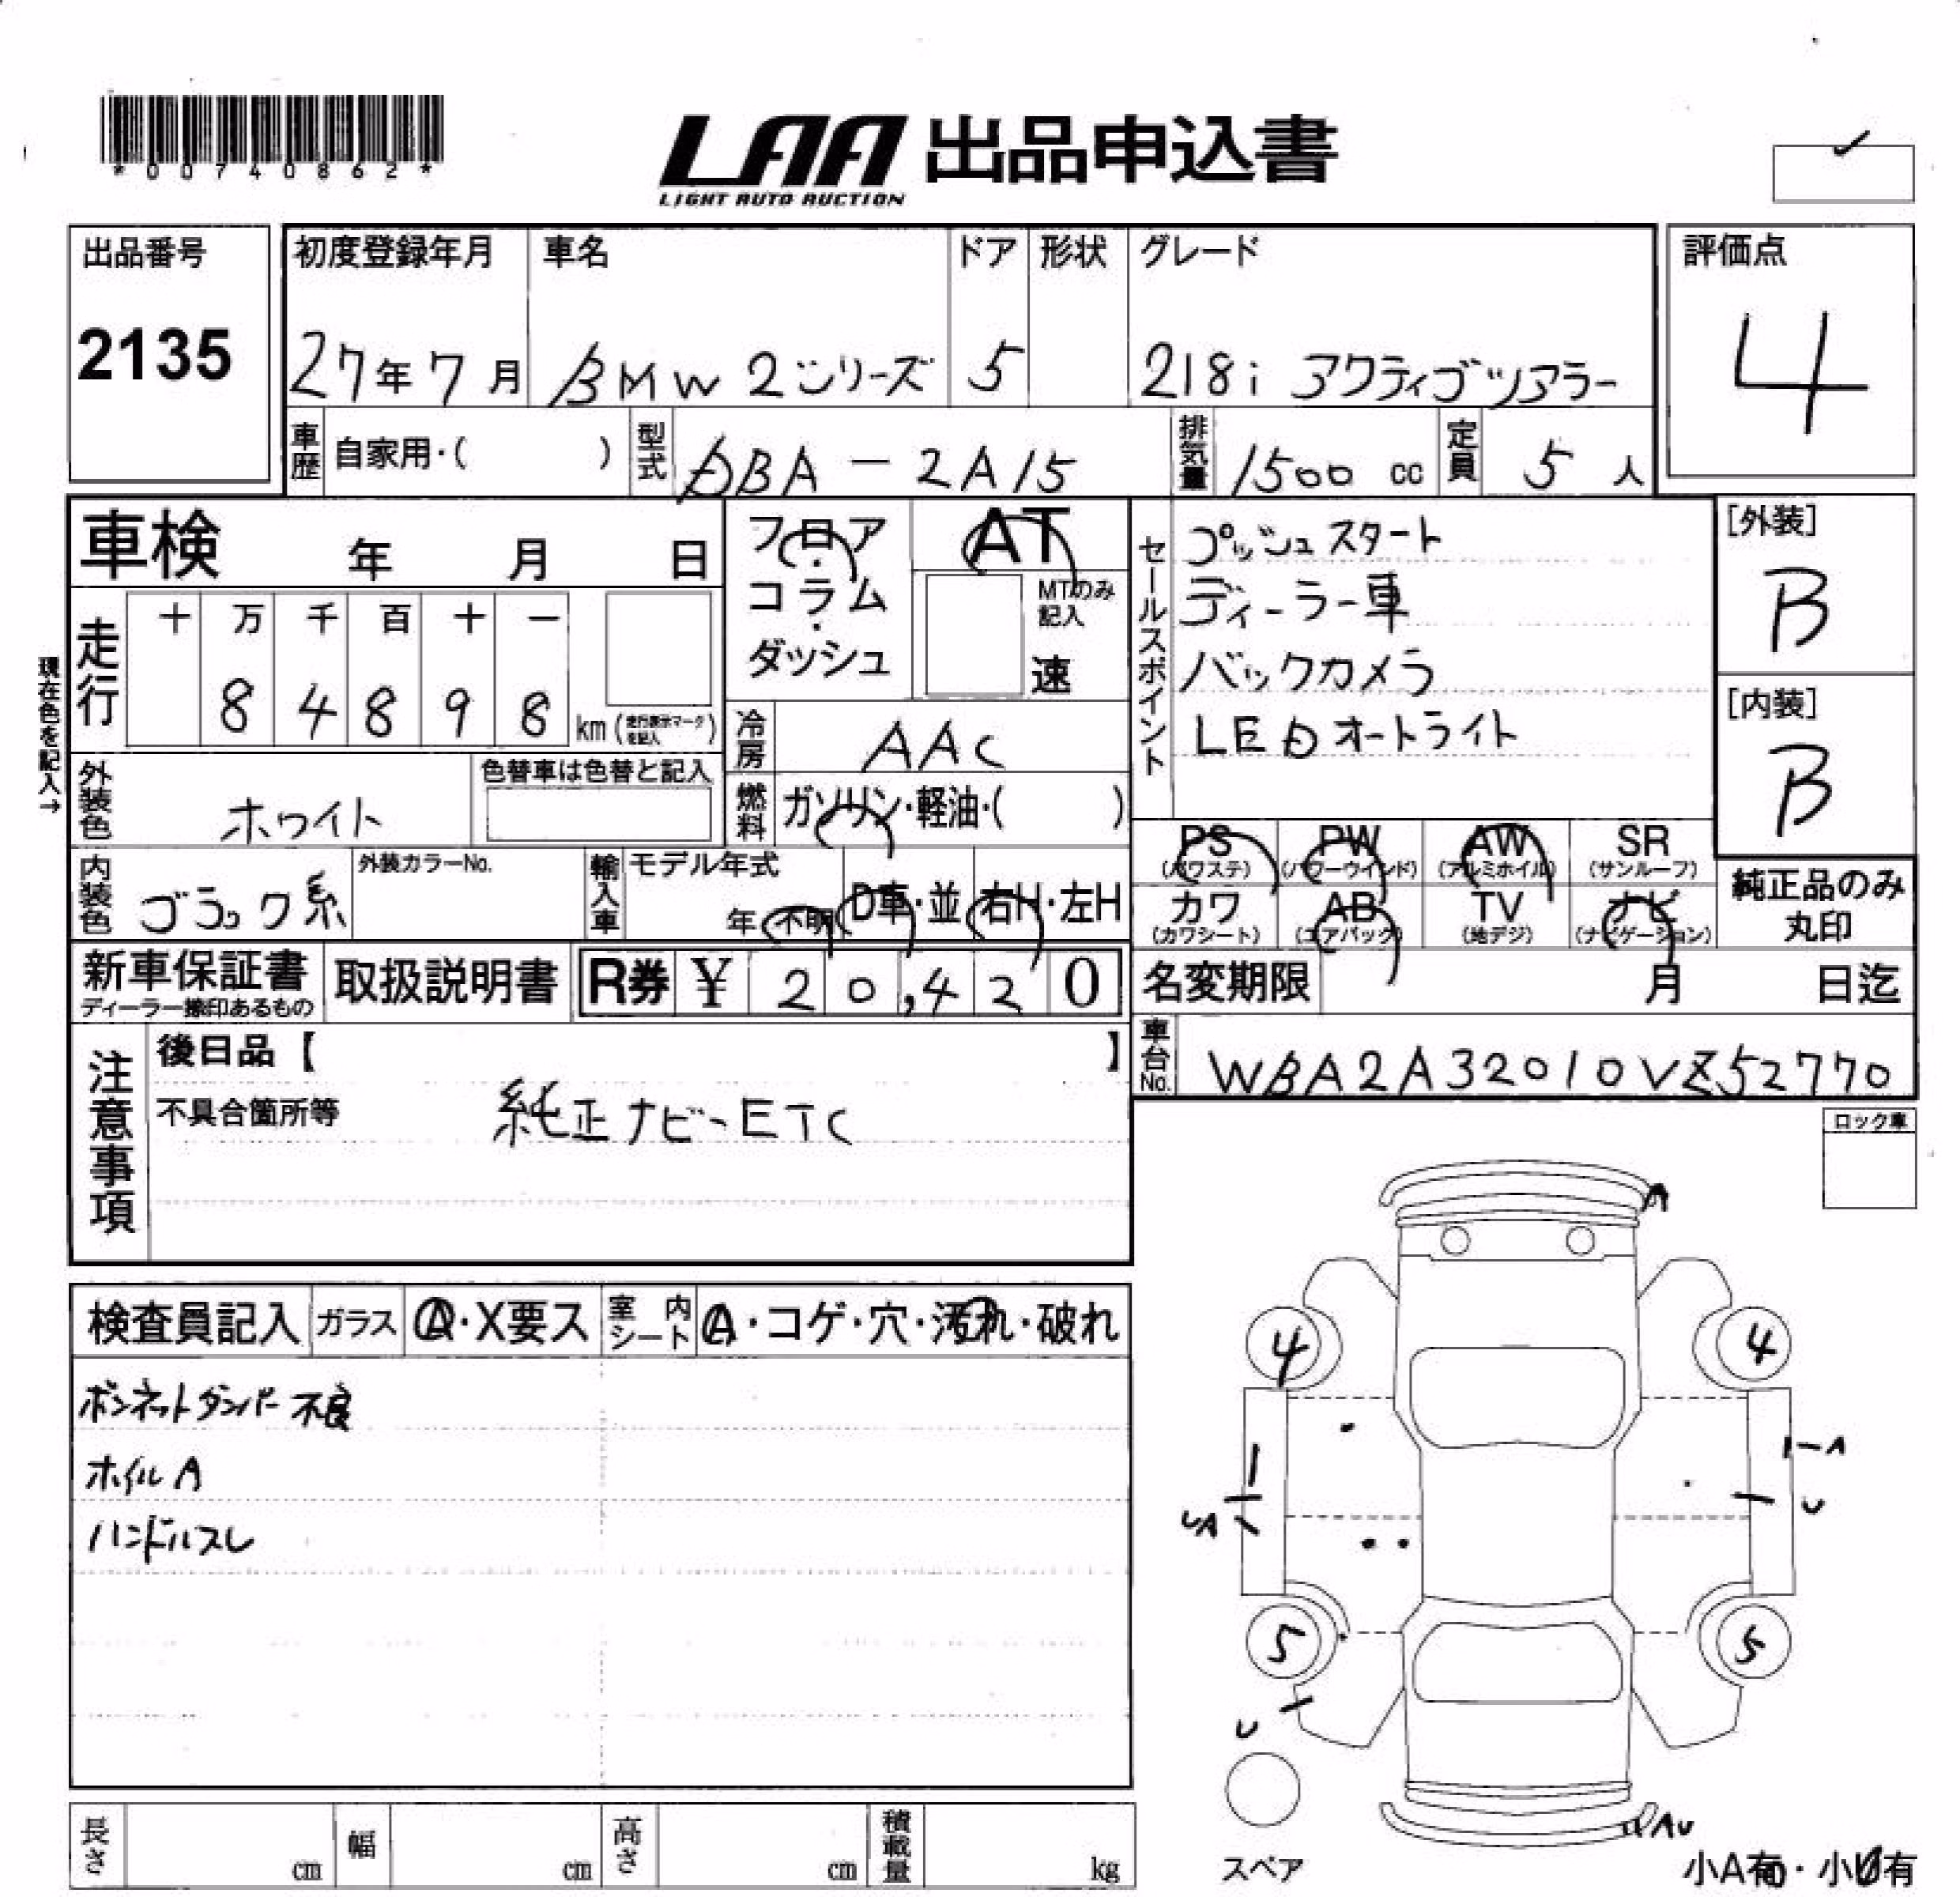 *00740862*
LAA 出品申込書
LIGHT AUTO AUCTION
出品番号
2135
初度登録年月
27年7月
車名
BMW 2シリーズ
ドア
5
形状
グレード
218i アクティブツアラー
評価点
4
車歴 自家用・( )
型式 DBA-2A15
排気量 1500 cc
定員 5 人
車検 年 月 日
現在色を記入→
走行
十 万 千 百 十 一
8 4 8 9 8 km (走行表示マークを記入)
外装色 ホワイト
色替車は色替と記入
内装色 ブラック系
外装カラーNo.
フロア・コラム・ダッシュ
AT
MTのみ記入
速
冷房 AAC
燃料 ガソリン・軽油・( )
輸入車 モデル年式
年 不明 D車・並 右H・左H
セールスポイント
プッシュスタート
ディーラー車
バックカメラ
LEDオートライト
[外装]
B
[内装]
B
PS (パワステ) PW (パワーウインド) AW (アルミホイル) SR (サンルーフ)
カワ (カワシート) AB (エアバック) TV (地デジ) ナビ (ナビゲーション)
純正品のみ丸印
新車保証書
ディーラー捺印あるもの
取扱説明書
R券 ¥ 20,420
名変期限 月 日迄
車台No. WBA2A32010VZ52770
注意事項
後日品【 】
不具合箇所等 純正ナビ-ETC
ロック車
検査員記入 ガラス A・X要ス 室内シート A・コゲ・穴・汚れ・破れ
ボンネットダンパー不良
ホイルA
ハンドルスレ
A
4 4
A
UA U
5 5
U
AU
スペア
小A有・小U有
長さ cm 幅 cm 高さ cm 積載量 kg